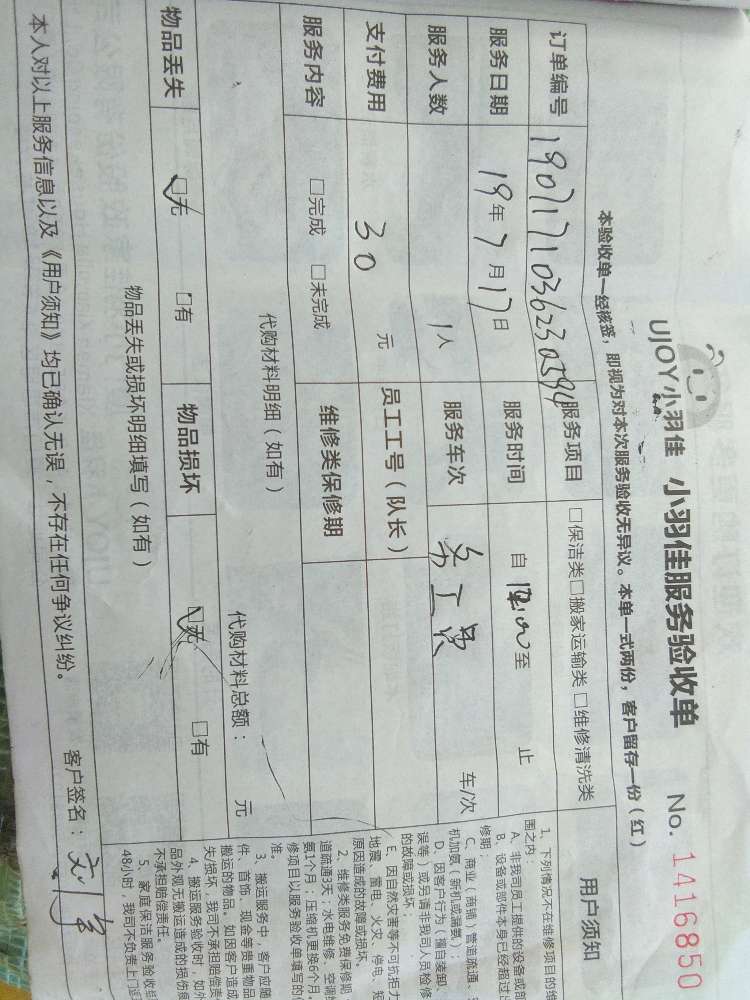 UJOY小羽佳 小羽佳服务验收单 No. 1416850
本验收单一经核签，即视为对本次服务验收无异议。本单一式两份，客户留存一份（红）
订单编号 1907171036230594 服务项目 □保洁类□搬家运输类 □维修清洗类
服务日期 19年7月17日 服务时间 自 至 止
服务人数 1人 服务车次 车/次
支付费用 30 元 员工工号（队长）
服务内容 □完成 □未完成 维修类保修期
代购材料明细（如有） 代购材料总额： 元
物品丢失 □无 □有 物品损坏 □无 □有
物品丢失或损坏明细填写（如有）
本人对以上服务信息以及《用户须知》均已确认无误，不存在任何争议纠纷。
客户签名：
用户须知
1、下列情况不在维修项目的维
围之内：
A、非我司员工提供的设备或部
B、设备或部件本身已经超过
修期；
C、商业（商铺）管道疏通、
机加氨（新机或漏氨）；
D、因客户行为（擅自装卸、
误等）或另请非我司人员检修
的故障或损坏；
E、因自然灾害等不可抗拒力
地震、雷电、火灾、停电、
原因造成的故障或损坏。
2、维修类服务免费保修期
道疏通3天；水电维修、空调
氨1个月；压缩机更换6个月
修项目以服务验收单填写的
准。
3、搬运服务中，客户应随
件、首饰、现金等贵重物品
搬运的物品。如因客户造成
失/损坏，我司不承担赔偿责
4、搬运服务验收时，如外
品外观无搬运造成的损伤
不承担赔偿责任。
5、家庭保洁服务验收
48小时，我司不负责上门